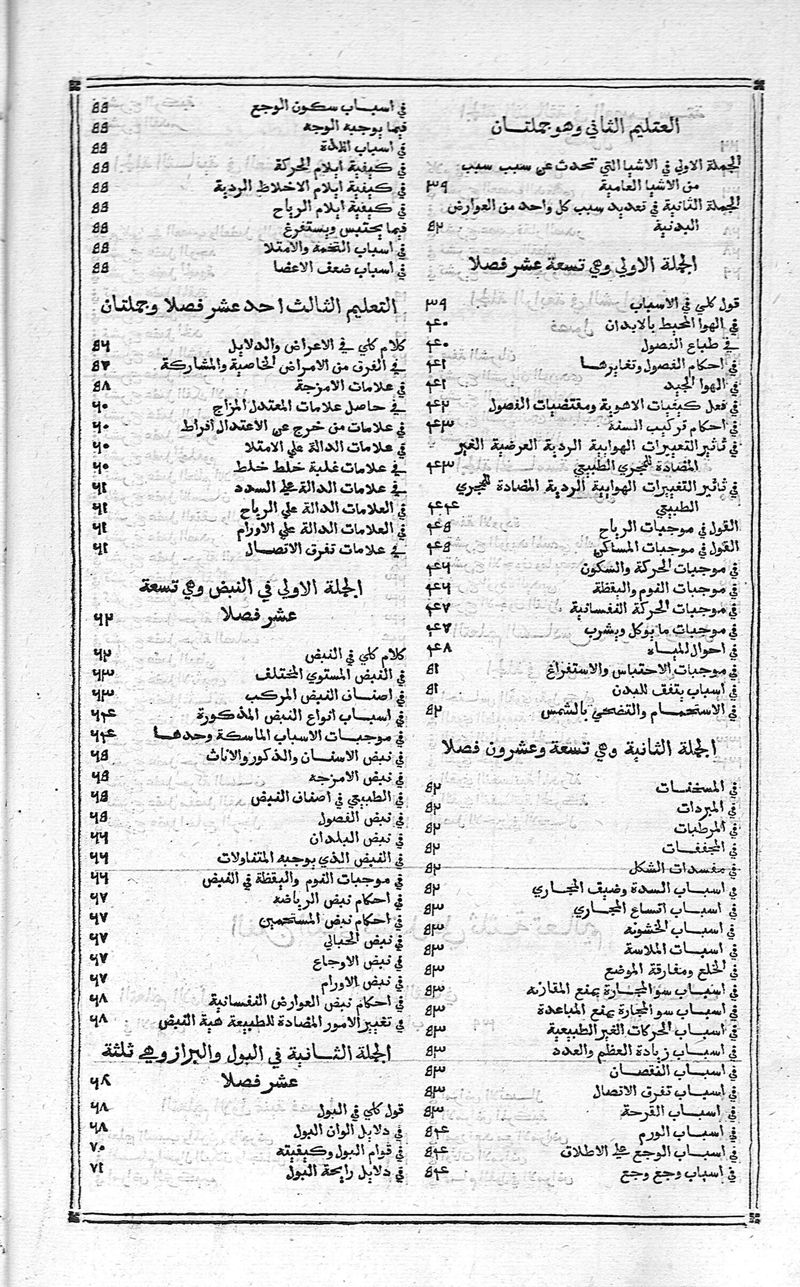 العتليم الثاني وهو جملتان
الجملة الاولي في الاشيا التي تحدث عن سبب سبب
من الاشيا العامية ٣٩
الجملة الثانية في تعديد سبب كل واحد من العوارض
البدنية ٥٢
الجملة الاولي وهي تسعة عشر فصلا
قول كلي في الاسباب ٣٩
في الهوا المحيط بالابدان ۴٠
في طباع الفصول ۴٠
في احكام الفصول وتغايرها ۴١
في الهوا الجيد ۴١
في فعل كيفيات الاهوية ومقتضيات الفصول ۴٢
في احكام تركيب السنة ۴٣
في تاثير التغييرات الهوايية الردية العرضية الغير
المضادة للمجري الطبيعي ۴٣
في تاثير التغييرات الهوايية الردية المضادة للمجري
الطبيعي ۴۴
القول في موجبات الرياح ۴٥
القول في موجبات المساكن ۴٥
في موجبات الحركة والسكون ۴٦
في موجبات النوم واليقظة ۴٦
في موجبات الحركة النفسانية ۴٧
في موجبات ما يوكل ويشرب ۴٧
في احوال المياه ۴٨
في موجبات الاحتباس والاستفراغ ٥١
في اسباب يتفق للبدن ٥١
في الاستحمام والتضحي بالشمس ٥٢
الجملة الثانية وهي تسعة وعشرون فصلا
في المسخنات ٥٢
في المبردات ٥٢
في المرطبات ٥٢
في المجففات ٥٢
في مفسدات الشكل ٥٢
في اسباب السدة وضيق المجاري ٥٢
في اسباب اتساع المجاري ٥٣
في اسباب الخشونه ٥٣
في اسبات الملاسة ٥٣
في الخلع ومفارقة الموضع ٥٣
في اسباب سو المجارة بمنع المقاربه ٥٣
في اسباب سو المجارة بمنع المباعدة ٥٣
في اسباب الحركات الغير الطبيعية ٥٣
في اسباب زيادة العظم والعدد ٥٣
في اسباب النقصان ٥٣
في اسباب تفرق الاتصال ٥٣
في اسباب القرحة ٥٣
في اسباب الورم ٥۴
في اسباب الوجع علي الاطلاق ٥۴
في اسباب وجع وجع ٥۴
في اسباب سكون الوجع ٥٥
فيما يوجبه الوجه ٥٥
في اسباب اللذة ٥٥
في كيفية ايلام الحركة ٥٥
في كيفية ايلام الاخلاط الردية ٥٥
في كيفية ايلام الرياح ٥٥
فيما يحتبس ويستفرغ ٥٥
في اسباب التخمة والامتلا ٥٥
في اسباب ضعف الاعضا ٥٥
التعليم الثالث احد عشر فصلا وجملتان
كلام كلي في الاعراض والدلايل ٥٦
في الفرق من الامراض الخاصية والمشاركة ٥٧
في علامات الامزجة ٥٨
في حاصل علامات المعتدل المزاج ٦٠
في علامات من خرج عن الاعتدال افراط ٦٠
في علامات الدالة علي الامتلا ٦٠
في علامات غلبة خلط خلط ٦٠
في علامات الدالة علي السدد ٦١
في العلامات الدالة علي الرياح ٦١
في العلامات الدالة علي الاورام ٦١
في علامات تفرق الاتصال ٦١
الجملة الاولي في النبض وهي تسعة
عشر فصلا ٦٢
كلام كلي في النبض ٦٢
في النبض المستوي المختلف ٦٣
في اصناف النبض المركب ٦٣
في اسباب انواع النبض المذكورة ٦۴
في موجبات الاسباب الماسكة وحدها ٦۴
في نبض الاسنان والذكور والاناث ٦٥
في نبض الامزجه ٦٥
في الطبيعي في اصناف النبض ٦٥
في نبض الفصول ٦٥
في نبض البلدان ٦٦
في النبض الذي يوجبه المتناولات ٦٦
في موجبات النوم واليقظة في النبض ٦٦
في احكام نبض الرياضه ٦٧
في احكام نبض المستحمين ٦٧
في نبض الحبالي ٦٧
في نبض الاوجاع ٦٧
في نبض الاورام ٦٧
في احكام نبض العوارض النفسانية ٦٨
في تغيير الامور المضادة للطبيعة هية النبض ٦٨
الجملة الثانية في البول والبراز وهي ثلثة
عشر فصلا ٦٨
قول كلي في البول ٦٨
في دلايل الوان البول ٦٨
في قوام البول وكيفيته ٧٠
في دلايل رايحة البول ٧١